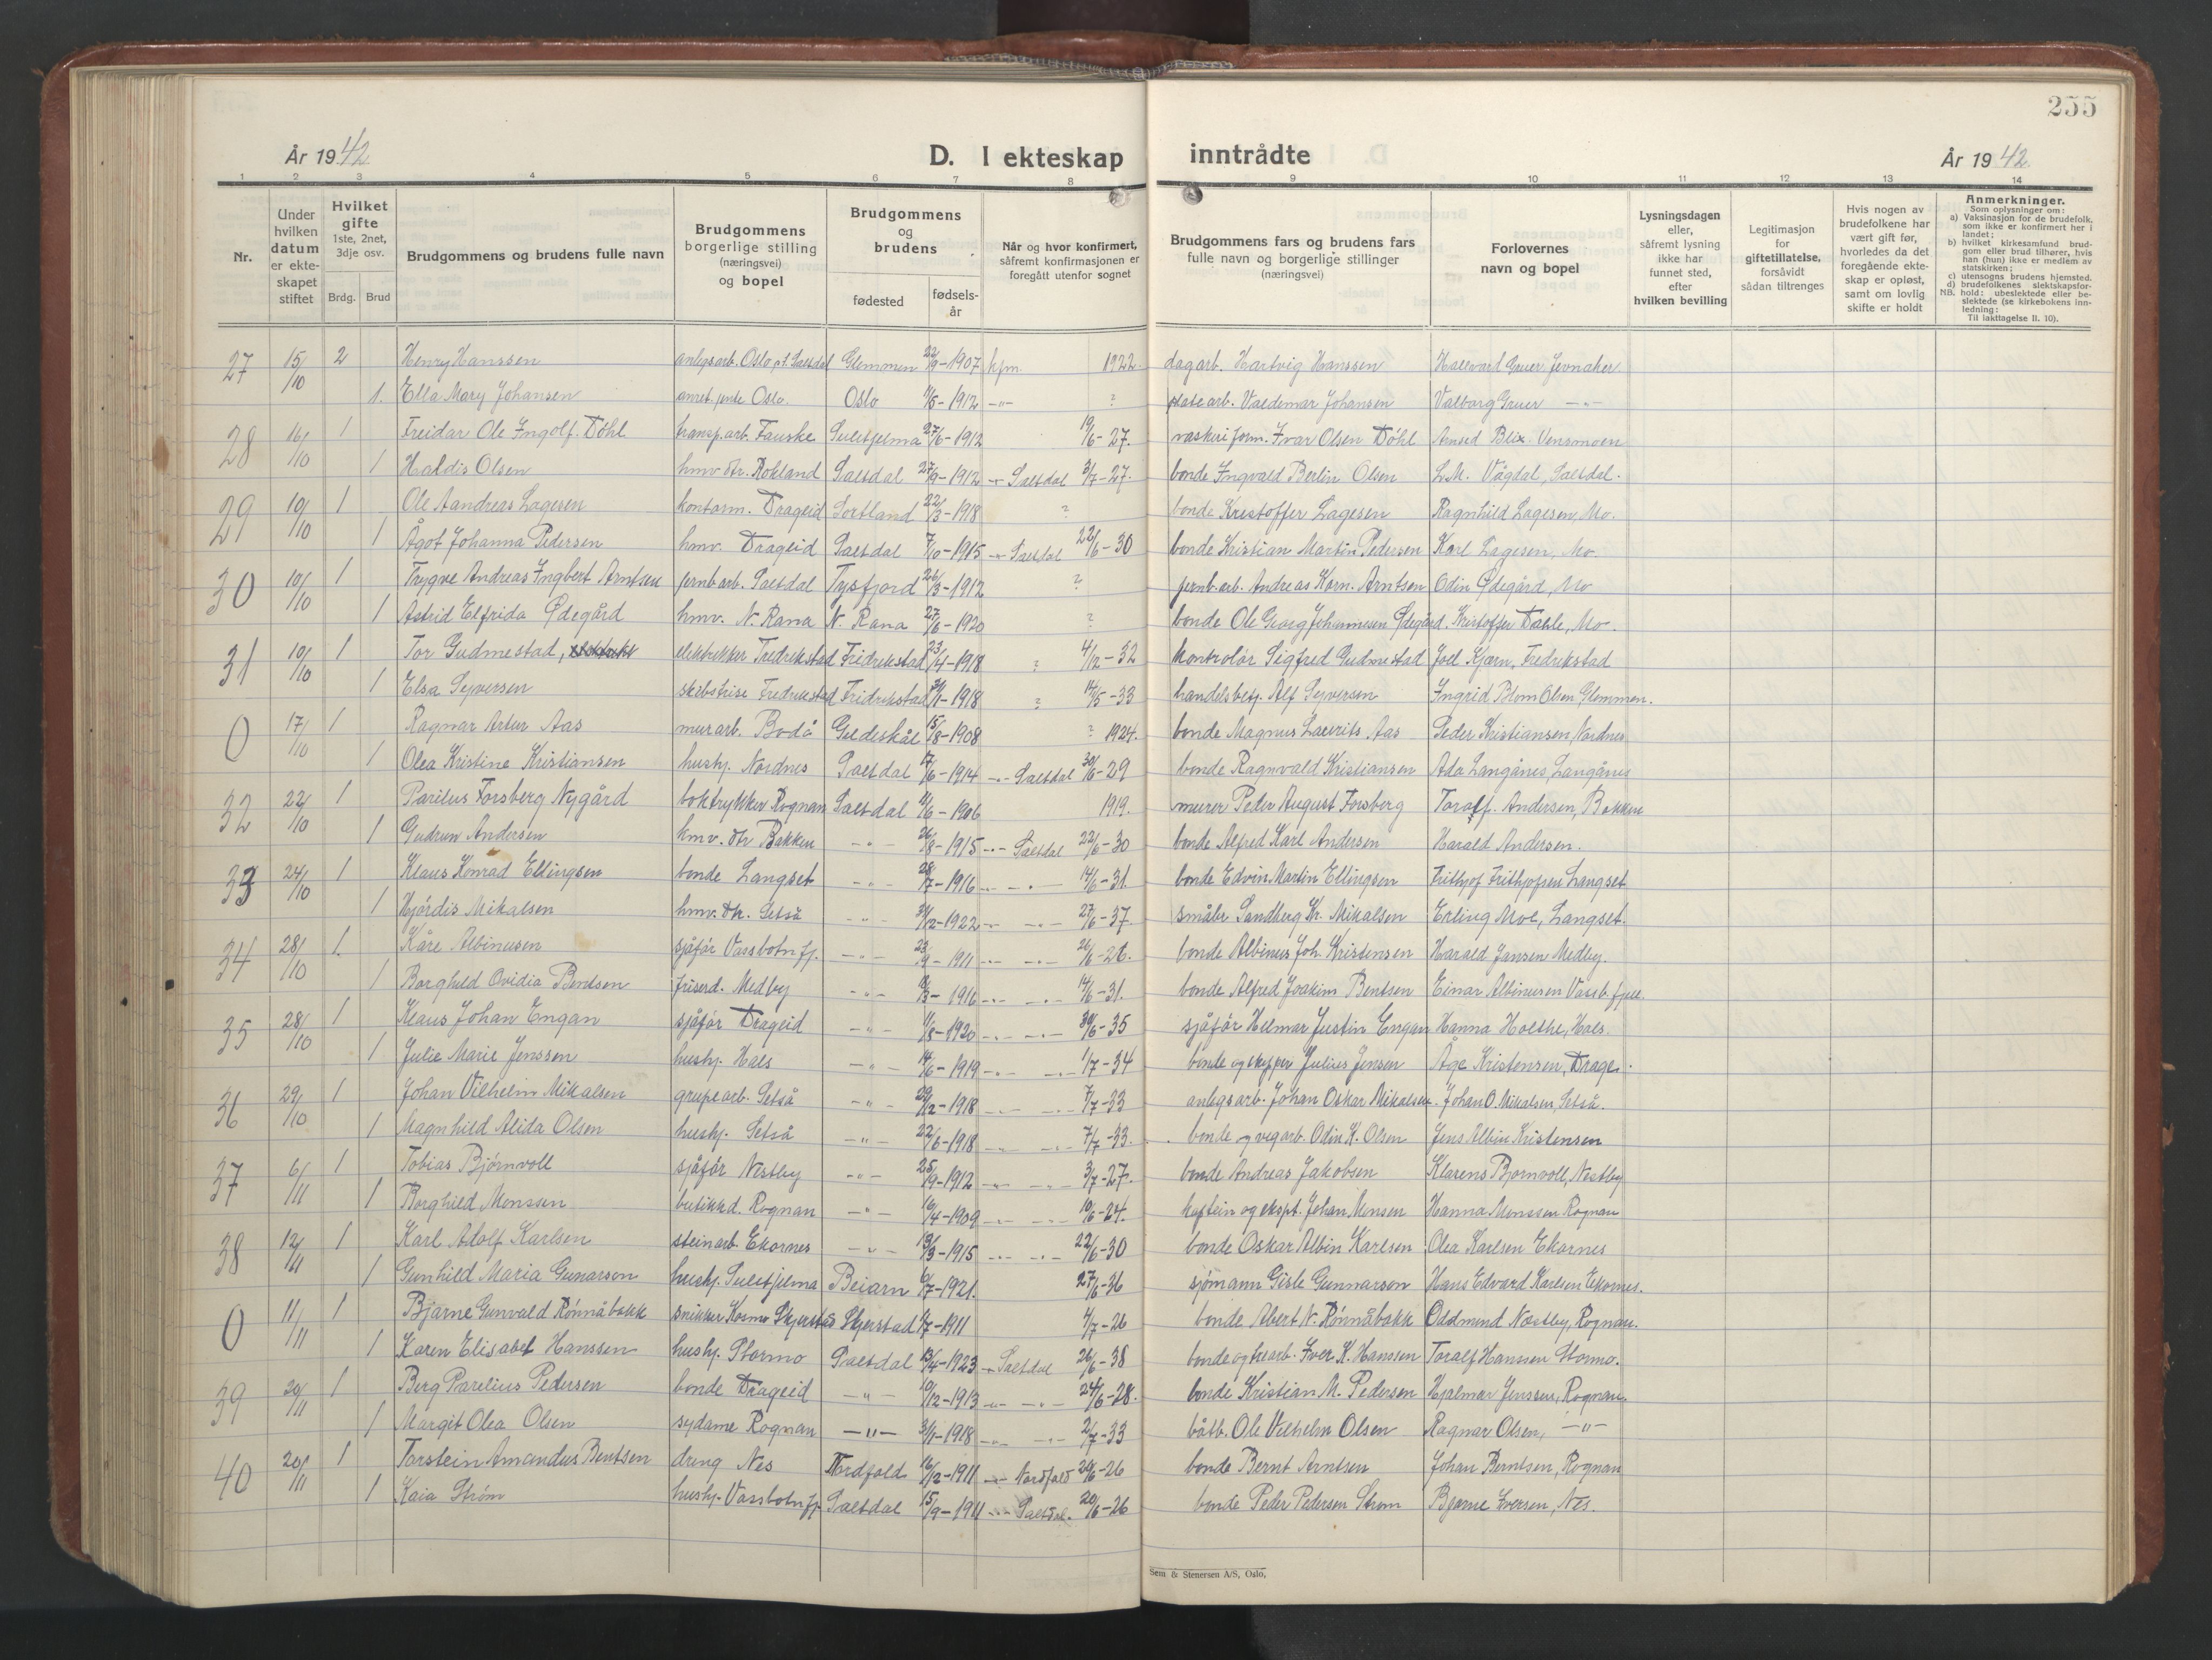 255
År 1942
D. I ekteskap inntrådte
År 1942
1 2 3 4 5 6 7 8 9 10 11 12 13 14
Nr.
Under hvilken datum er ekteskapet stiftet
Hvilket gifte 1ste, 2net, 3dje osv.
Brdg. Brud
Brudgommens og brudens fulle navn
Brudgommens borgerlige stilling (næringsvei) og bopel
Brudgommens og brudens
fødested
fødsels-år
Når og hvor konfirmert, såfremt konfirmasjonen er foregått utenfor sognet
Brudgommens fars og brudens fars fulle navn og borgerlige stillinger (næringsvei)
Forlovernes navn og bopel
Lysningsdagen eller, såfremt lysning ikke har funnet sted, efter hvilken bevilling
Legitimasjon for giftetillatelse, forsåvidt sådan tiltrenges
Hvis nogen av brudefolkene har vært gift før, hvorledes da det foregående ekte-skap er opløst, samt om lovlig skifte er holdt
Anmerkninger.
Som oplysninger om:
a) Vaksinasjon for de brudefolk, som ikke er konfirmert her i landet;
b) hvilket kirkesamfund brud-gom eller brud tilhører, hvis han (hun) ikke er medlem av statskirken;
c) utensogns brudens hjemsted.
d) brudefolkenes slektskapsfor-hold: ubeslektede eller be-slektede (se kirkebokens inn-ledning:
NB. Til iakttagelse II. 10).
27 15/10 2 Henry Hanssen anlegsarb. Oslo pt. Saltdal Glemmen 22/9-1907 kfm. 1922. dagarb. Hartvig Hanssen Hallvard Gruer Jevnaker
1. Ella Mary Johansen Oslo. Oslo 1912 -"- ? platearb. Valdemar Johansen Valborg Gruer -"-
28 16/10 1 Freidar Ole Ingolf Döhl transp.arb. Fauske Sulitjelma 27/6-1912 19/6-27. vaskeri form. Ivar Olsen Döhl Blix Vensmoen
1 Haldis Olsen hmv. dtr. Rokland Saltdal 27/9-1912 -"- Saltdal 3/7-27. bonde Ingvald Berlin Olsen L.M. Vågdal, Saltdal.
29 10/10 1 Ole Aandreas Lagesen kontorm. Drageid Sortland 22/3-1918 ? bonde Kristoffer Lagesen Ragnhild Lagesen, Mo.
1 Ågot Johanna Pedersen hmv. Drageid Saltdal 7/10-1915 -"- Saltdal 22/6-30 bonde Kristian Martin Pedersen Karl Lagesen, Mo.
30 10/10 1 Trygve Andreas Ingbert Arntsen jernb.arb. Saltdal Tysfjord 26/3-1912 ? jernb.arb. Andreas Korn. Arntsen Odin Ødegård, Mo
1 Astrid Elfrida Ødegård hmv. N. Rana N. Rana 27/6-1920 ? bonde Ole Georg Johannesen Ødegård. Kristoffer Dahle, Mo.
31 10/10 1 Tor Gudmestad, elektriker Fredrikstad Fridrikstad 23/4-1918 ? 4/12-32 kontrolör Sigfred Gudmestad Joel Kjærn, Fredrikstad
1 Elsa Syversen Fredrikstad Fridrikstad 1918 ? 14/5-33 handelsbetj. Alf Syversen Ingrid Blom Olsen Glemmen.
0 17/10 1 Ragnar Artur Aas murarb. Bodö Gildeskål 15/8-1908 ? 1924. bonde Magnus Laurits Aas Peder Kristiansen, Nordnes
1 Olea Kristine Kristiansen hushj. Nordnes Saltdal 17/6-1914 -"- Saltdal 30/6-29 bonde Ragnvald Kristiansen Ada Langånes, Langånes
32 22/10 1 Parilus Forsberg Nygård boktrykker Rognan Saltdal 4/6-1906 1919. murer Peder August Forsberg Toralf Andersen, Bakken
1 Gudrun Andersen hmv. dtr Bakken -"- 26/8-1915 -"- Saltdal 22/6-30 bonde Alfred Karl Andersen Harald Andersen.
33 24/10 1 Klaus Konrad Ellingsen bonde Langset -"- 28/7-1916 -"- -"- 14/6-31. bonde Edvin Martin Ellingsen Frithjof Frithjofsen Langset
1 Hjördis Mikalsen hmv. dtr. Setså -"- 31/12-1922 -"- -"- 27/6-37. småbr Sandberg Kr. Mikalsen Erling Moe, Langset.
34 28/10 1. Kåre Albinusen sjåför Vassbotnfj. -"- 23/9-1911 -"- -"- 26/6-26. bonde Albinus Joh. Kristensen Harald Jansen Medby.
1 Borghild Ovidia Bentsen friserd. Medby -"- 1916 -"- -"- 14/6-31. bonde Alfred Joakim Bentsen Einar Albinusen Vassb. fjell.
35 28/10 1 Klaus Johan Engan sjåför Drageid -"- 1/8-1920 -"- -"- 30/6-35 sjåför Hilmar Justin Engan Hanna Holthe, Hals.
1 Julie Marie Jenssen hushj. Hals -"- 14/6-1919 -"- -"- 1/7-34 bonde og skipper Julius Jensen Åge Kristensen, Drage.
36 29/10 1 Johan Vilhelm Mikalsen grupearb. Setså -"- 29/12-1918 -"- -"- 7/7-33 anlegsarb. Johan Oskar Mikalsen. Johan O. Mikalsen, Setså.
1 Magnhild Alida Olsen hushj. Setså -"- 22/6-1918 -"- -"- 7/7-33. bonde og vegarb. Odin K. Olsen Jens Albin Kristensen
37 6/11 1 Tobias Bjørnvoll sjåför Nestby -"- 25/9-1912 -"- -"- 3/7-27. bonde Andreas Jakobsen Klarens Bjørnvoll, Nestby
1 Borghild Monssen butikkd. Rognan -"- 16/4-1909 -"- -"- 10/6-24. kaptein og ekspt. Johan Monsen Hanna Monssen Rognan
38 12/11 1 Karl Adolf Karlsen steinarb. Ekornes -"- 13/3-1915 -"- -"- 22/6-30 bonde Oskar Albin Karlsen Olea Karlsen Ekornes
1 Gunhild Maria Gunarson hushj. Sulitjelma Beiarn 6/7-1921. 27/6-36 sjømann Gisle Gunnarson Hans Edvard Karlsen Ekornes.
0 11/11 1 Bjarne Gunvald Rönnåbakk snikker Kosmo Skjerstad Skjerstad 1/7-1911 4/7-26 bonde Albert N. Rönnåbakk Oddmund Næstby, Rognan.
1 Karen Elisabet Hanssen hushj. Stormo Saltdal 13/4-1923 -"- Saltdal 26/6-38 bonde og trearb. Iver K. Hanssen Toralf Hanssen Stormo.
39 20/11 1 Berg Parelius Pedersen bonde Drageid -"- 10/12-1913 -"- -"- 24/6-28. bonde Kristian M. Pedersen Hjalmar Jenssen, Rognan.
1 Margit Olea Olsen sydame Rognan -"- 3/1-1918 -"- -"- 2/7-33 båtb. Ole Vilhelm Olsen Ragnar Olsen, -"-
40 20/11 1 Torstein Amandus Bentsen dreng Nes Nordfold 16/12-1911 -"- Nordfold 20/6-26 bonde Bernt Arntsen Johan Berntsen, Rognan
1 Kaia Strøm hushj. Vassbotnfj. Saltdal 15/9-1911 -"- Saltdal. 20/6-26 bonde Peder Pedersen Strøm Bjarne Iversen, Nes.
Sem & Stenersen A/S, Oslo.